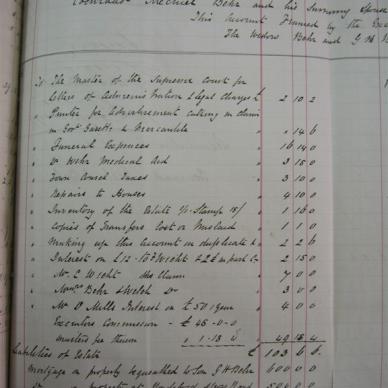 Mechiel Behr and his surviving spouse
This Account Framed by the
The Widow Behr and
To The Master of the Supreme Court for
letters of administration & legal charges £ 2 10 2
" Printer for Advertisement calling in claims
in Govt Gazette & Mercantile " 14 6
" Funeral Expences " 16 14 0
" Dr Wehr Medical Aid " 3 15 0
" Town Council Taxes " 3 10 0
" Repairs to Houses " 4 10 0
" Inventory of the Estate Stamp 15/ " 1 16 0
" Copies of Transfers lost or Mislaid " 1 1 0
" Making up this account in duplicate & " 2 2 6
" Interest on £12 to Wicht " 2 15 0
" Mr C Wicht his Claim " 7 0 0
" Behr & Welch Do " 3 0 0
" Mr D Mills Interest on £50 1 year " 4 0 0
Executors Commission - £48-0-0
Masters fee thereon " 1 13 4 " 49 13 4
Liabilities of Estate £ 103 6 6
Mortgage on property bequeathed to Son 600 0 0
property at